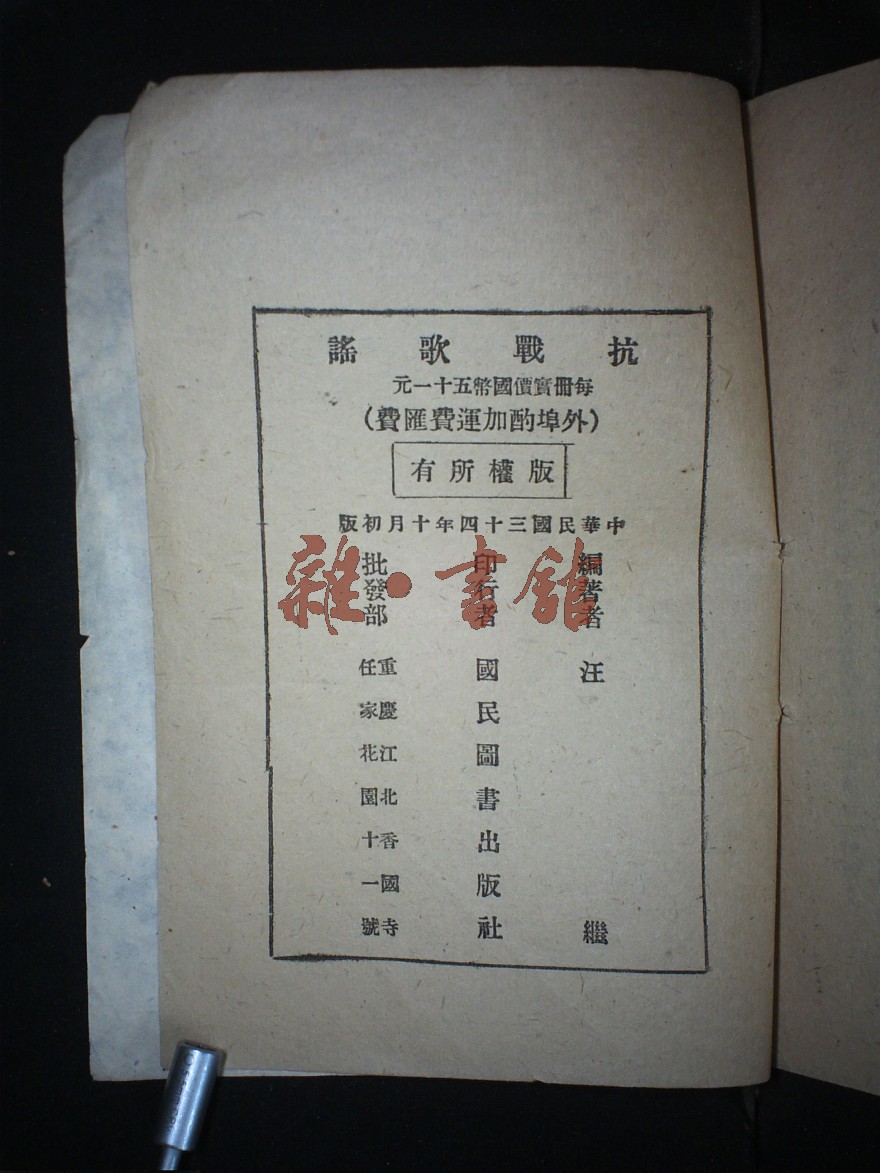 抗戰歌謠
每冊實價國幣五十一元
(外埠酌加運費匯費)
版權所有
中華民國三十四年十月初版
編著者 汪繼
印行者 國民圖書出版社
批發部 重慶江北香國寺
任家花園十一號
雜·書館